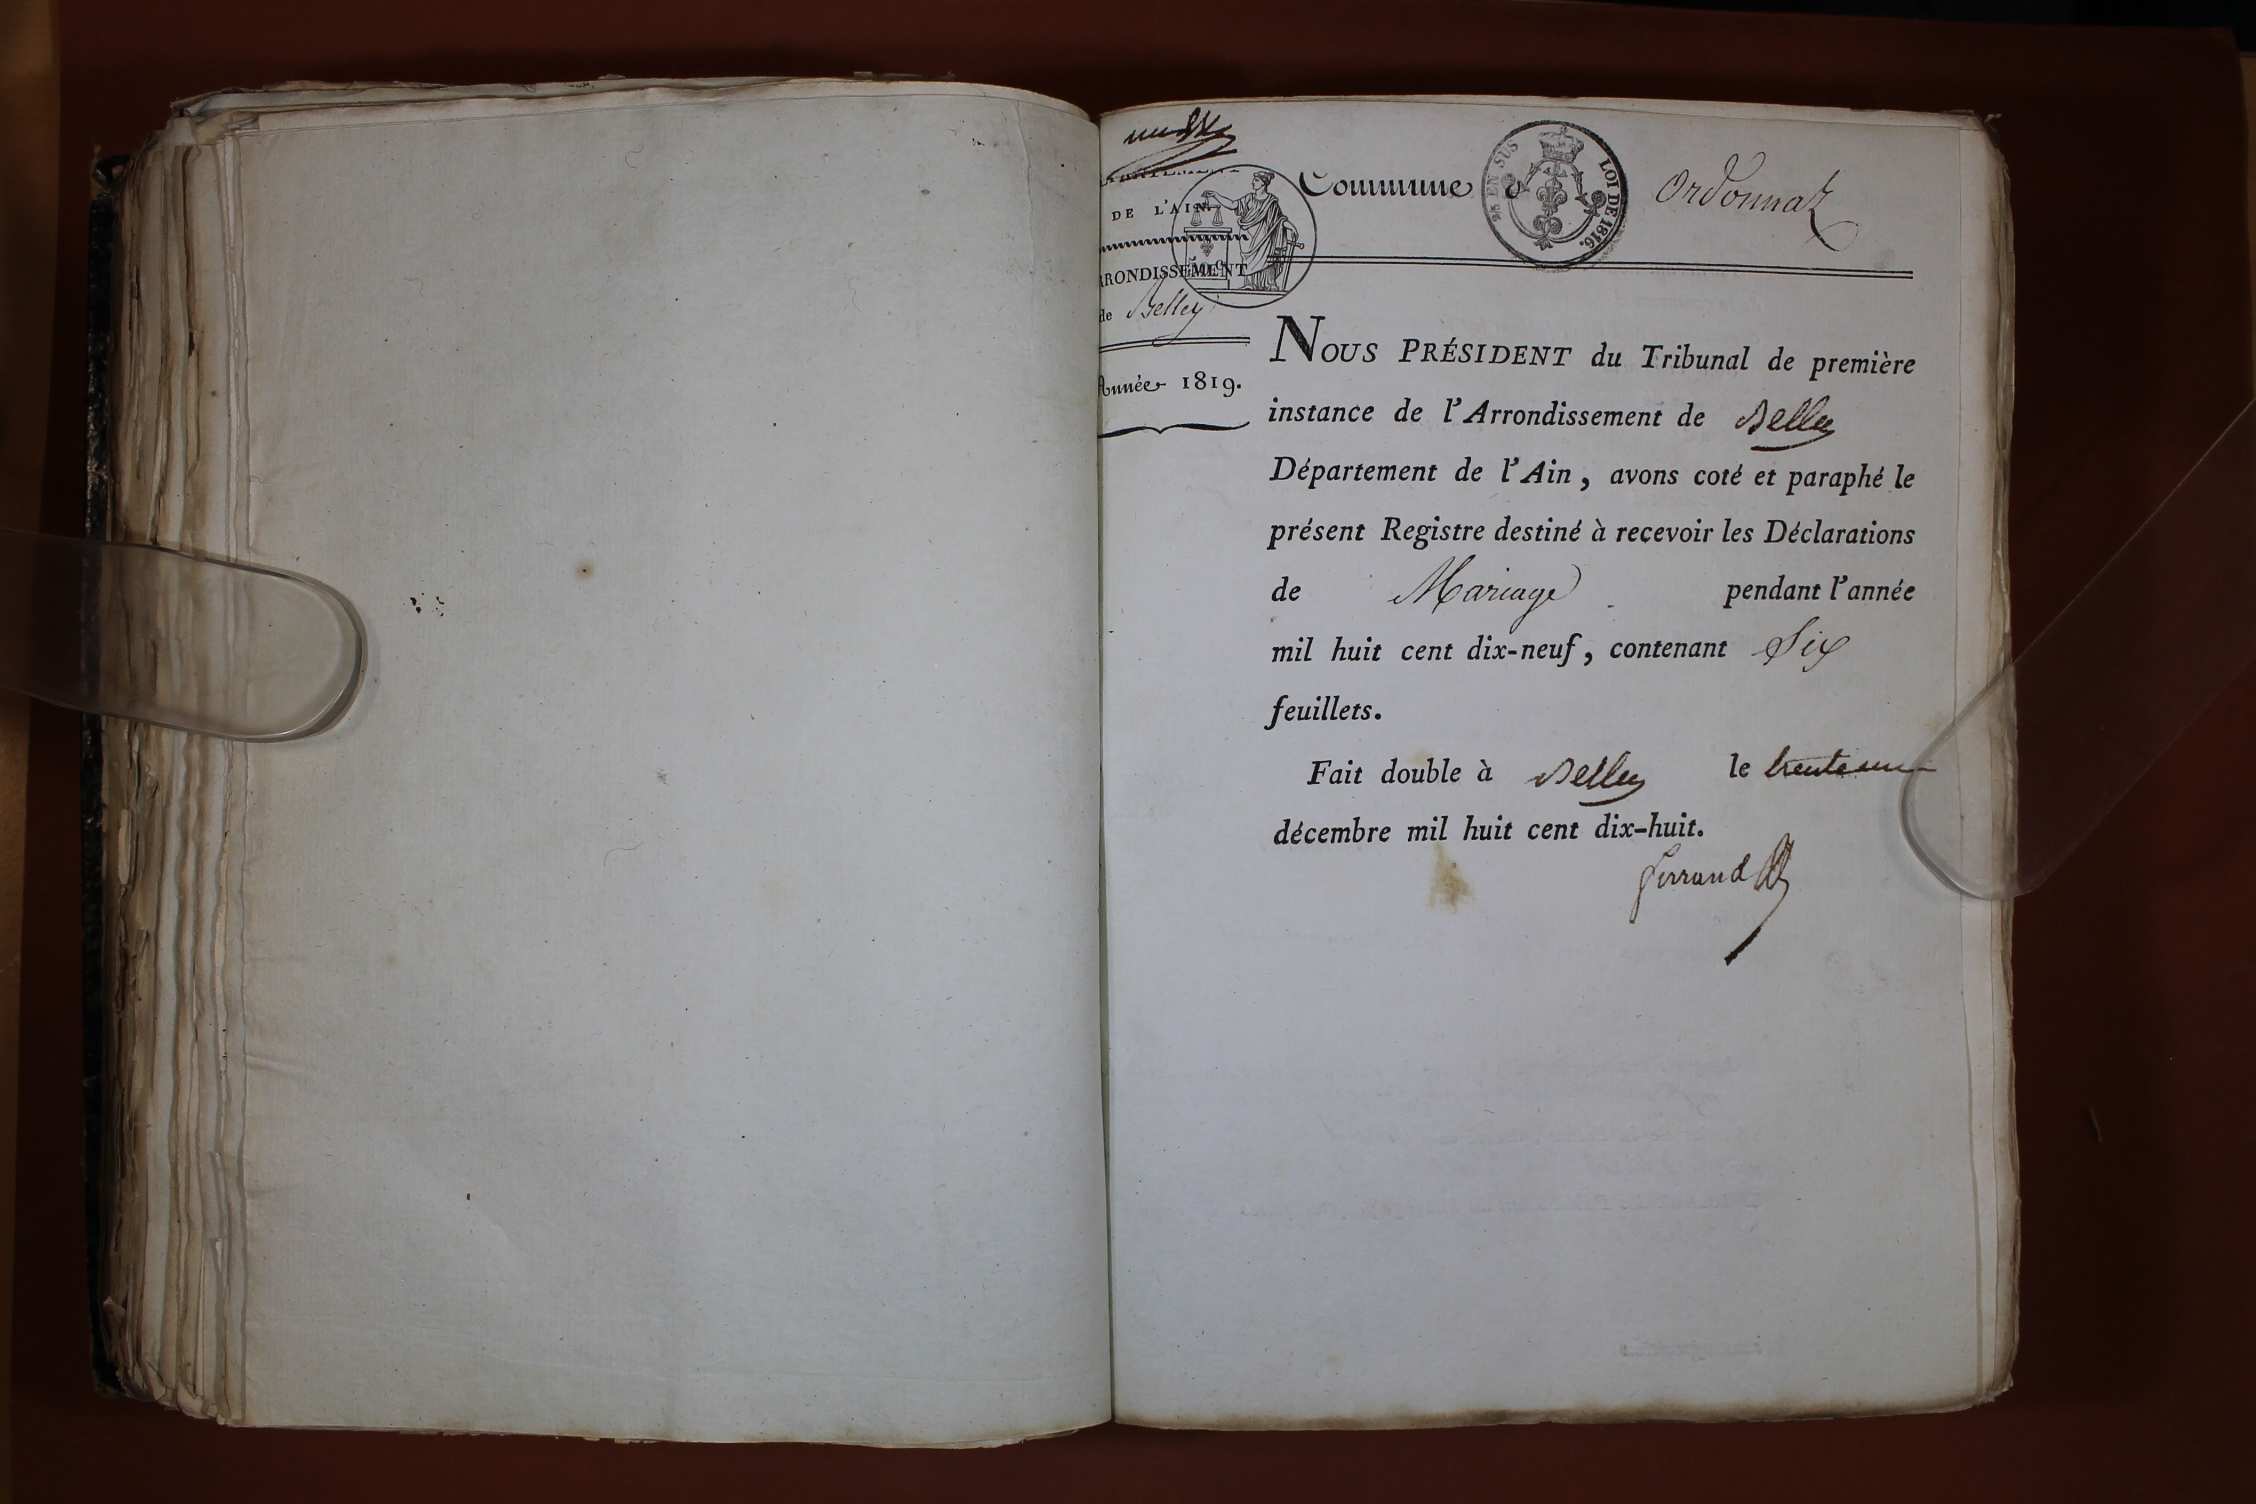 DE L'AIN.
Commune d Ordonnaz
25 EN SUS
LOI DE 1816.
RRONDISSEMENT
de Belley
Année 1819.
NOUS PRÉSIDENT du Tribunal de première
instance de l'Arrondissement de Belley
Département de l'Ain, avons coté et paraphé le
présent Registre destiné à recevoir les Déclarations
de Mariage pendant l'année
mil huit cent dix-neuf, contenant Six
feuillets.
Fait double à Belley le trente un
décembre mil huit cent dix-huit.
Ferrand